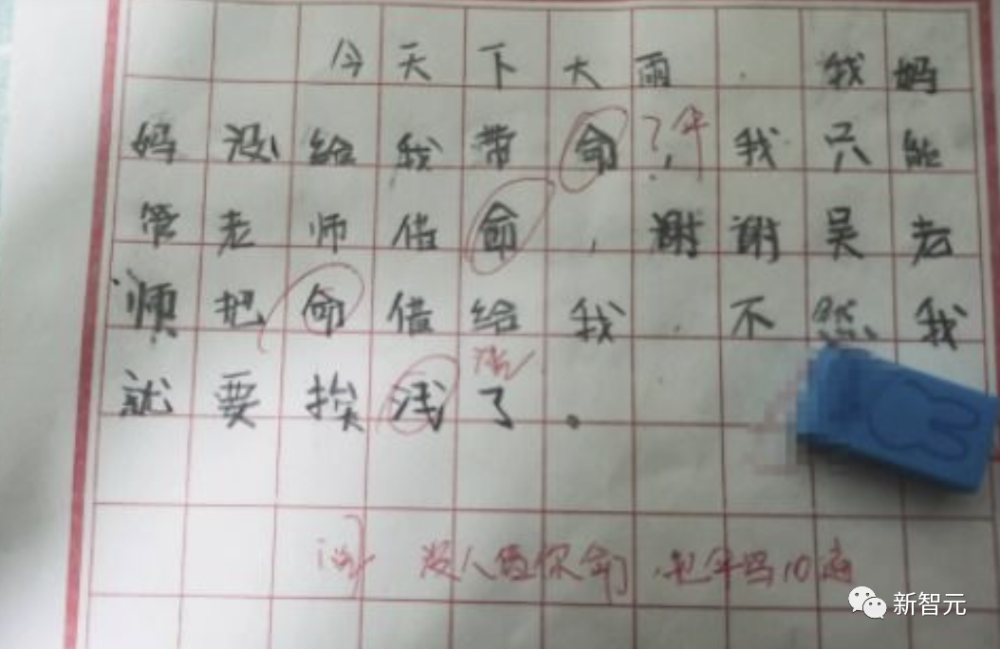 今天下大雨，我妈
妈没给我带命，我只能 伞
管老师借命，谢谢吴老
师把命借给我，不然我
就要挨浅了。
没人借你命，把伞写10遍
新智元